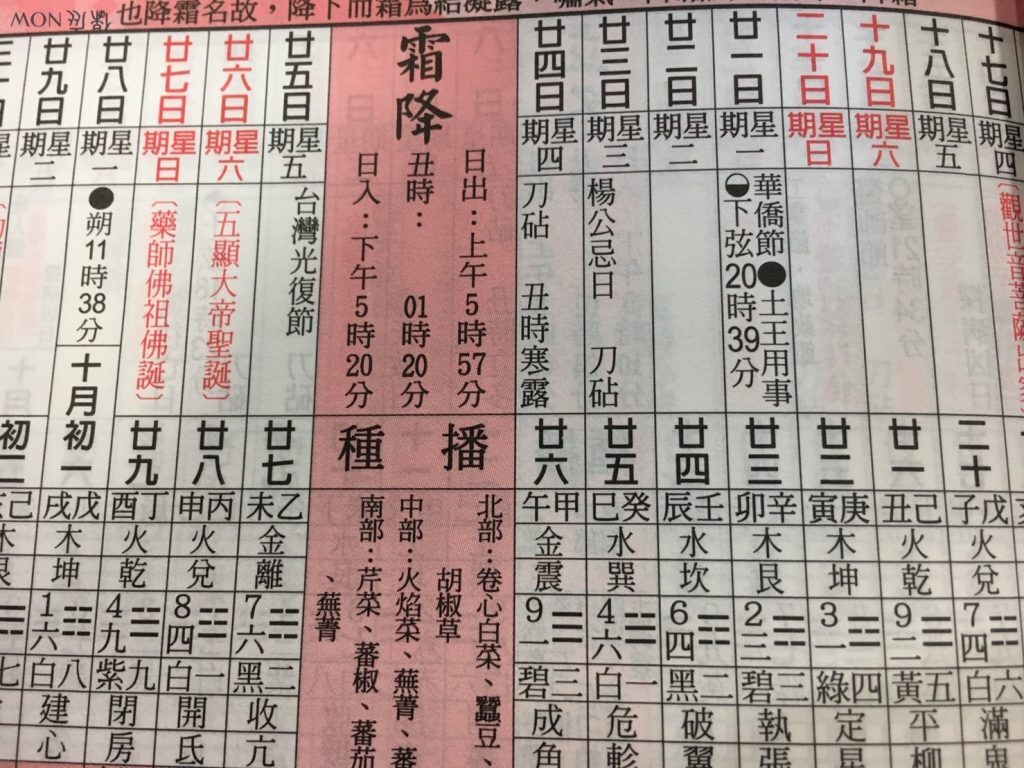 也降霜名故，降下而霜爲結凝露
十七日
星期四
二十
戊子
火
兌
7
四
六白
滿
鬼
十八日
星期五
十九日
星期六
廿一
己丑
火
乾
9
二
五黃
平
柳
二十日
星期日
廿二
庚寅
木
坤
3
一
四綠
定
星
廿一日
星期一
華僑節●土王用事
下弦20時39分
廿三
辛卯
木
艮
2
三
三碧
執
張
廿二日
星期二
廿四
壬辰
水
坎
6
四
二黑
破
翼
廿三日
星期三
楊公忌日 刀砧
廿五
癸巳
水
巽
4
六
一白
危
軫
廿四日
星期四
刀砧 丑時寒露
廿六
甲午
金
震
9
一
三碧
成
角
霜降
日出：上午5時57分
丑時：01時20分
日入：下午5時20分
播種
北部：卷心白菜、蠶豆、
胡椒草
中部：火焰菜、蕪菁、蕃
南部：芹菜、蕃椒、蕃茄
、蕪菁
廿五日
星期五
台灣光復節
廿七
乙未
金
離
7
六
二黑
收
亢
廿六日
星期六
〔五顯大帝聖誕〕
廿八
丙申
火
兌
8
四
一白
開
氐
廿七日
星期日
〔藥師佛祖佛誕〕
廿九
丁酉
火
乾
4
九
九紫
閉
房
廿八日
星期一
●朔11時38分
十月初一
戊戌
木
坤
1
六
八白
建
心
廿九日
星期二
初二
己亥
木
艮
七